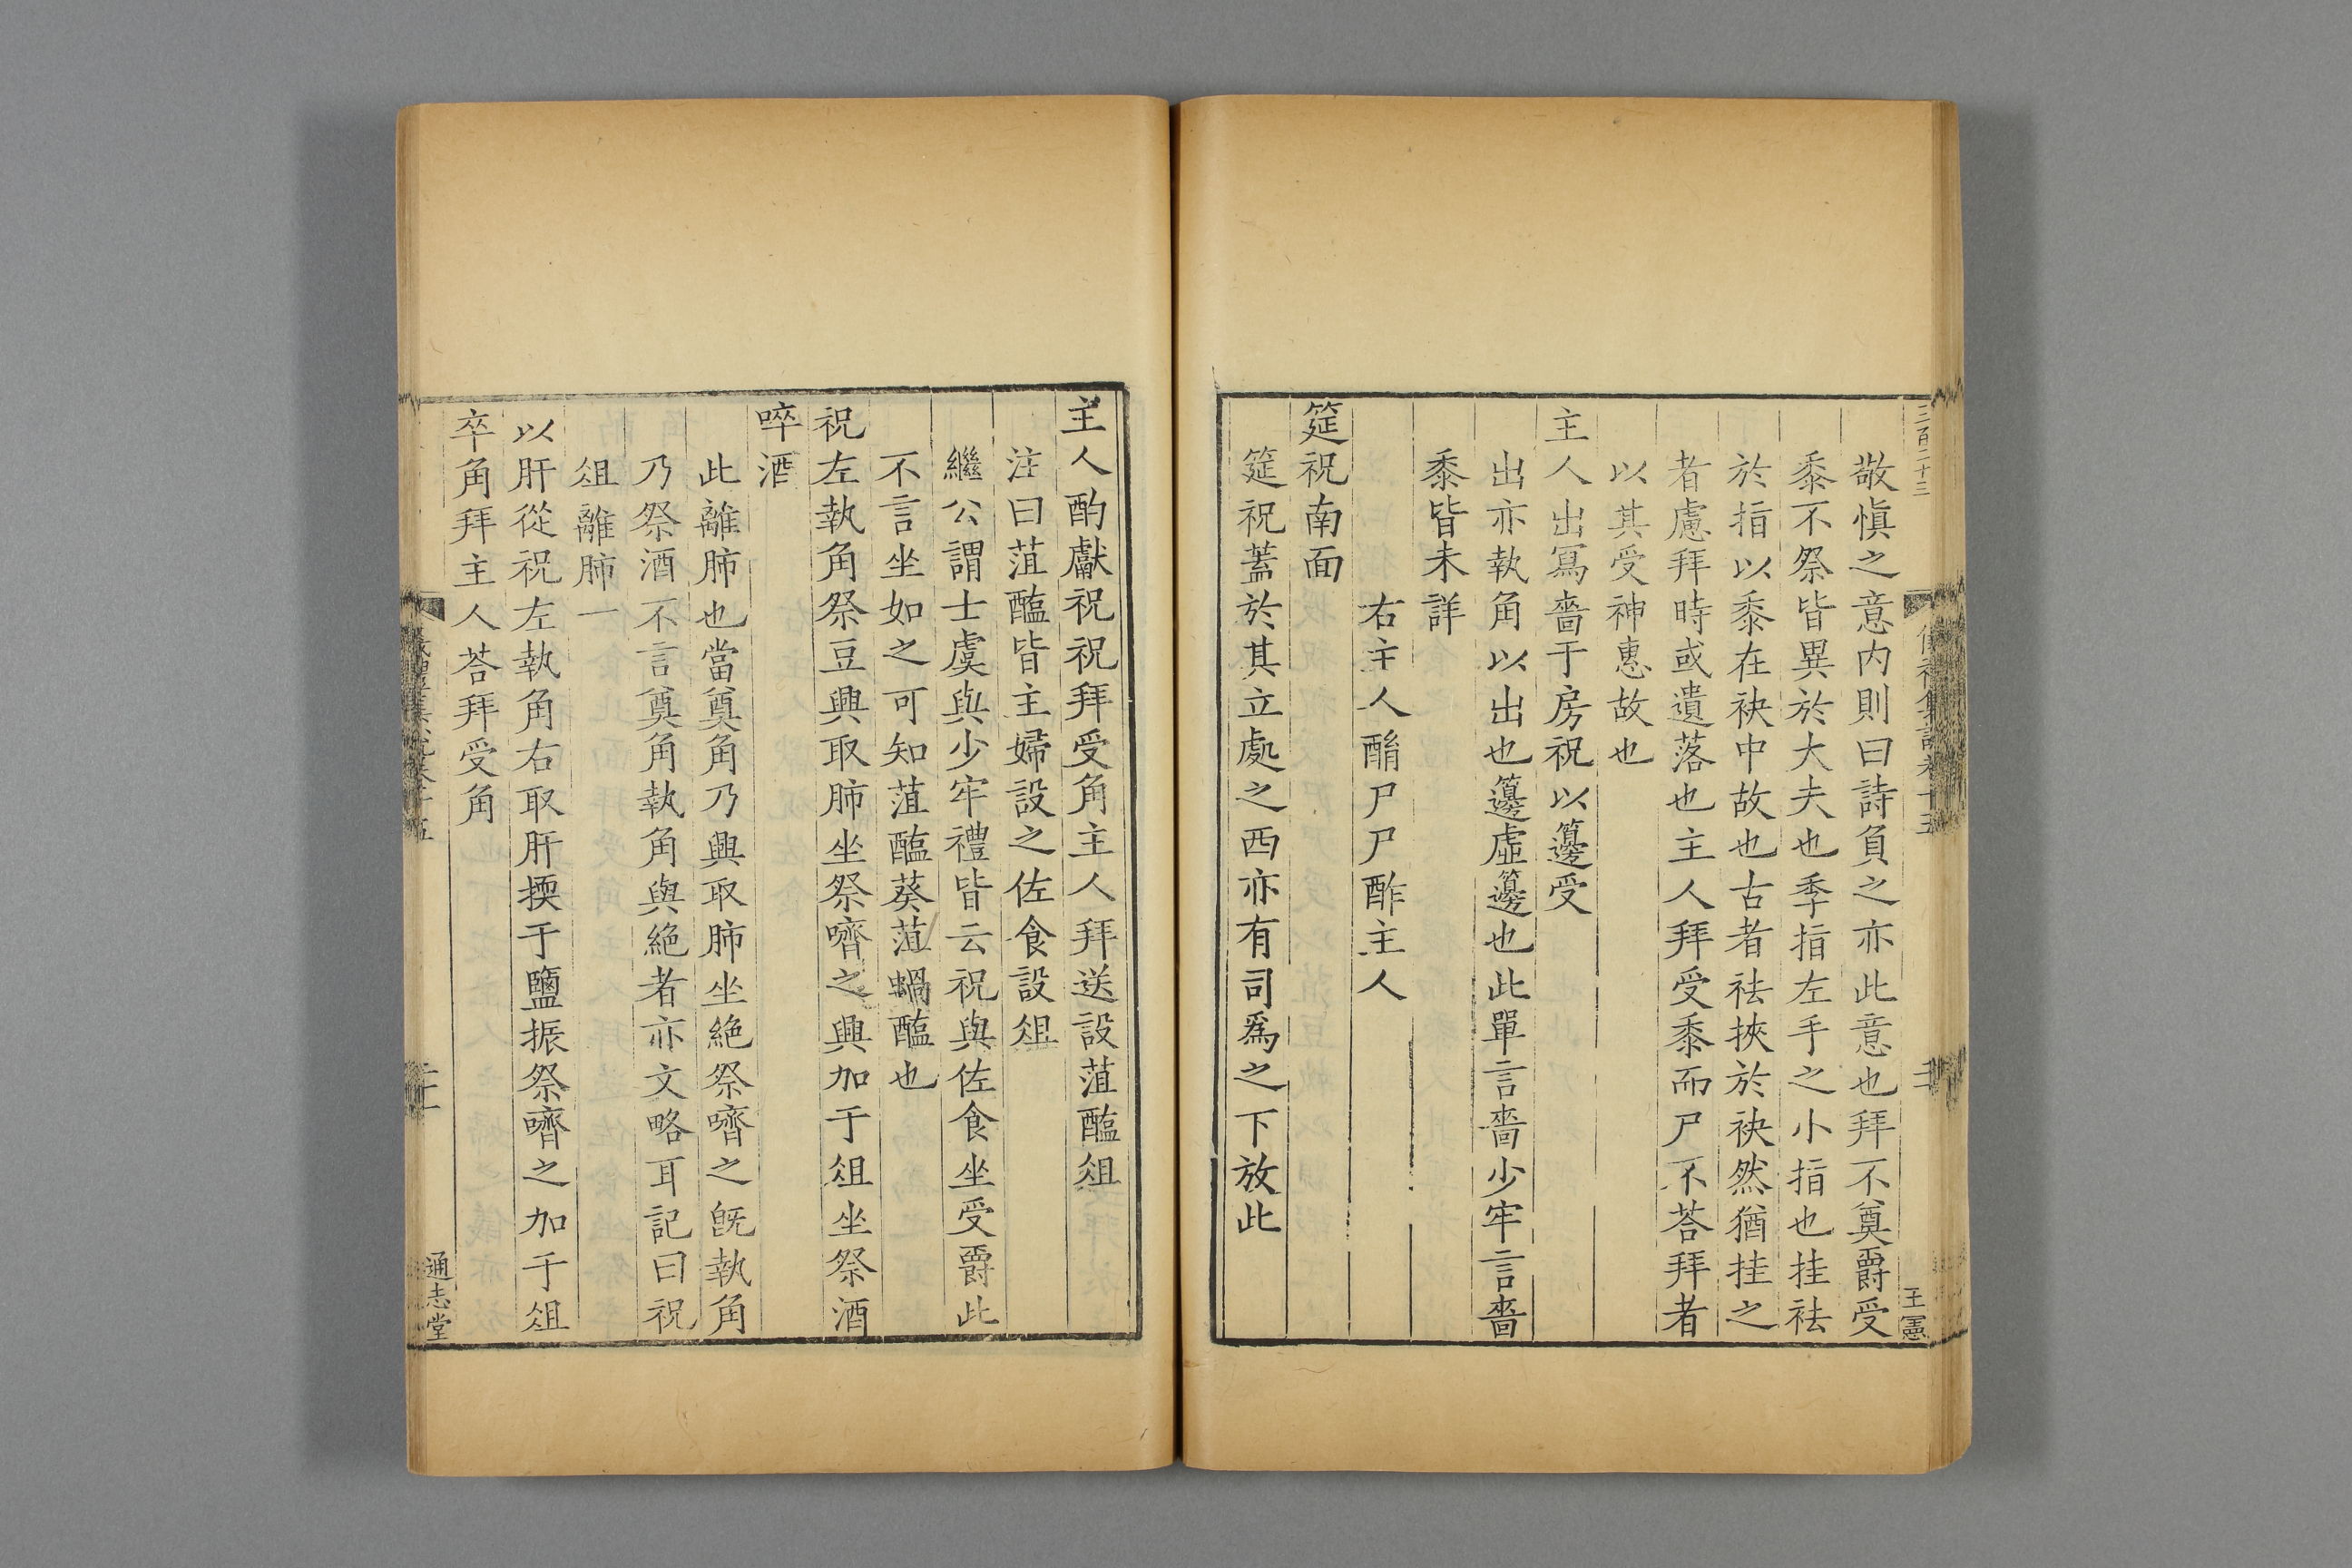 三百二十三
王憲
敬慎之意内則曰詩負之亦此意也拜不奠爵受
黍不祭皆異於大夫也季指左手之小指也挂袪
於指以黍在袂中故也古者袪挾於袂然猶挂之
者慮拜時或遺落也主人拜受黍而尸不荅拜者
以其受神惠故也
主人出冩嗇于房祝以籩受
出亦執角以出也籩虛籩也此單言嗇少牢言嗇
黍皆未詳
右主人酳尸尸酢主人
筵祝南面
筵祝蓋於其立處之西亦有司爲之下放此
主人酌獻祝祝拜受角主人拜送設菹醢俎
注曰菹醢皆主婦設之佐食設俎
繼公謂士虞與少牢禮皆云祝與佐食坐受爵此
不言坐如之可知菹醢葵菹蝸醢也
祝左執角祭豆興取肺坐祭嚌之興加于俎坐祭酒
啐酒
此離肺也當奠角乃興取肺坐絕祭嚌之旣執角
乃祭酒不言奠角執角與絕者亦文略耳記曰祝
俎離肺一
以肝從祝左執角右取肝㨎于鹽振祭嚌之加于俎
卒角拜主人荅拜受角
通志堂